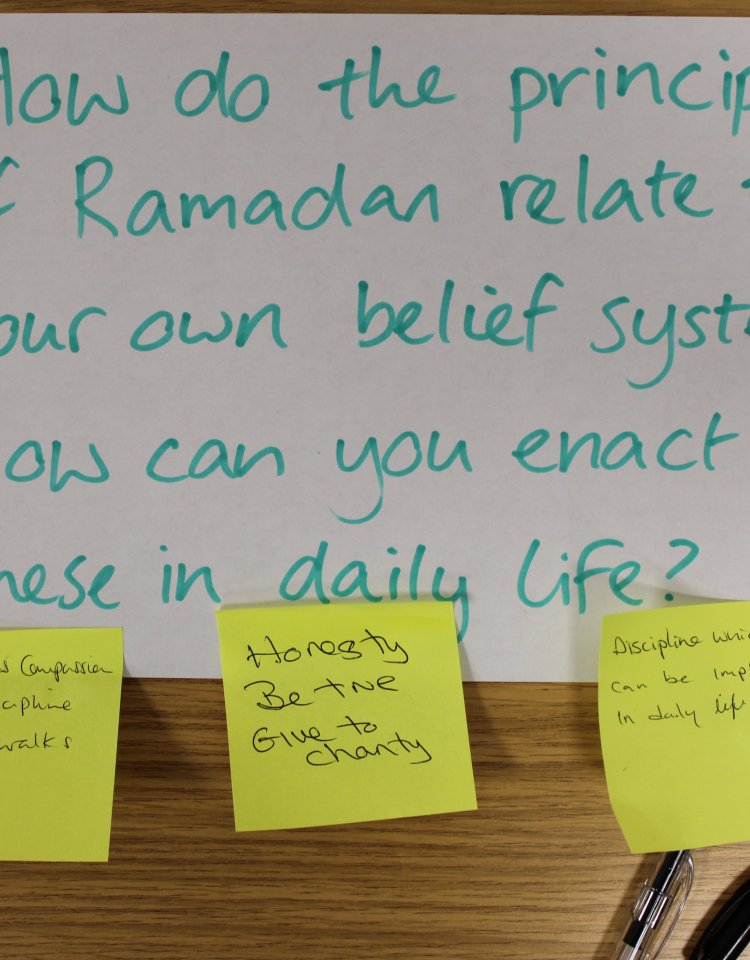 How do the princip
Ramadan relate
our own belief syst
ow can you enact
hese in daily life?
s Compassion
cipline
walks
Honesty
Be true
Give to
charity
Discipline whic
can be imp
In daily life